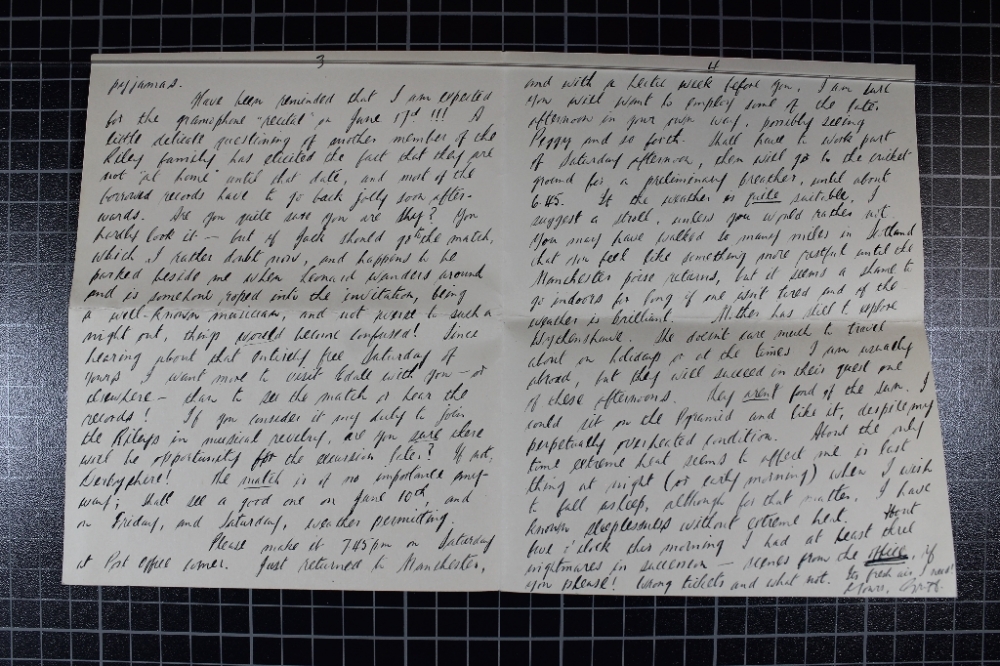 3
pyjamas.
Have been reminded that I am expected
for the gramophone "recital" on June 17th !!! A
little delicate questioning of another member of the
Riley family has elicited the fact that they are
not "at home" until that date, and most of the
borrowed records have to go back jolly soon after-
wards. Are you quite sure you are shy? You
hardly look it — but if Jack should go to the match,
which I rather doubt now, and happens to be
parked beside me when Leonard wanders around
and is somehow roped into the invitation, being
a well-known musician, and not averse to such a
night out, things would become confused! Since
hearing about that entirely free Saturday of
yours I want more to visit Edale with you — or
elsewhere — than to see the match or hear the
records! If you consider it my duty to join
the Rileys in musical revelry, are you sure there
will be opportunity for the excursion later? If not,
Derbyshire! The match is of no importance any-
way; shall see a good one on June 10th and
on Friday, and Saturday, weather permitting.
Please make it 7.45 pm on Saturday
at Post Office corner. Just returned to Manchester,
4
and with a hectic week before you, I am sure
you will want to employ some of the late
afternoon in your own way, possibly seeing
Peggy and so forth. Shall have to work part
of Saturday afternoon, then will go to the cricket
ground for a preliminary breather, until about
6.45. If the weather is quite suitable, I
suggest a stroll, unless you would rather not.
You may have walked so many miles in Scotland
that you feel like something more restful until the
Manchester poise returns, but it seems a shame to
go indoors for long if one isn't tired and if the
weather is brilliant. Mother has still to explore
Wythenshawe. She doesn't care much to travel
about on holidays or at the times I am usually
abroad, but they will succeed in their quest one
of these afternoons. They aren't fond of the sun. I
could sit on the Pyramid and like it, despite my
perpetually overheated condition. About the only
time extreme heat seems to affect me is last
thing at night (or early morning) when I wish
to fall asleep, although for that matter, I have
known sleeplessness without extreme heat. About
five o'clock this morning I had at least three
nightmares in succession — scenes from the office, if
you please! Wrong tickets and what not. For fresh air, I need!
Yours,